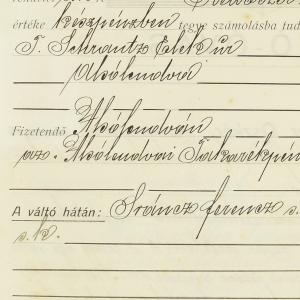 értéke készpénzben tegye számolásba tud
T. Schrantz Elek úr
Alsólendva
Fizetendő Alsólendván
az Alsólendvai Takarékpén
A váltó hátán: Sráncz ferencz s.
s.k.